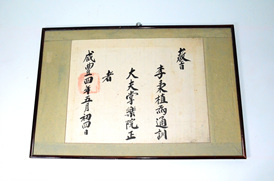 教旨
李秉植爲通訓
大夫掌樂院正
者
咸豊四年五月初四日